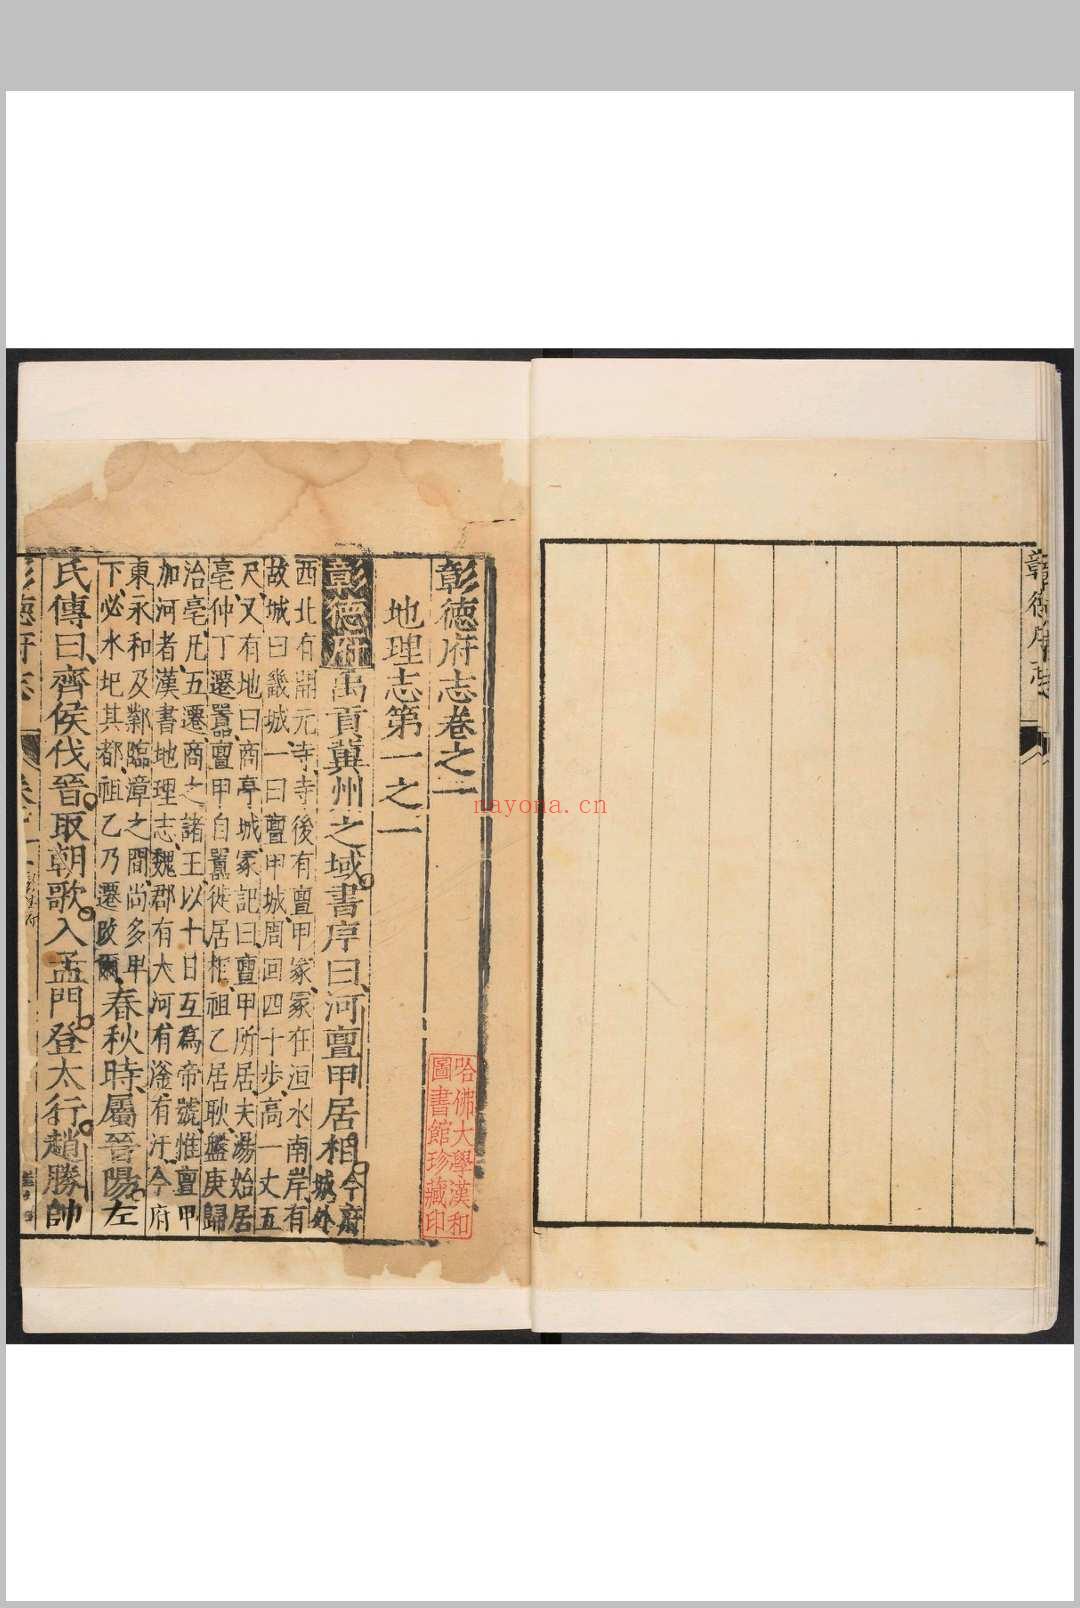 彰德府志
彰德府志卷之一
地理志第一之一
彰德府禹貢冀州之域書序曰河亶甲居相今府
城外
西北有開元寺寺後有亶甲冢冢在洹水南岸有
故城曰畿城一曰亶甲城周回四十步高一丈五
尺又有地曰商亭城冢記曰亶甲所居夫湯始居
亳仲丁遷囂亶甲自囂徙居相祖乙居耿盤庚歸
治亳凡五遷商之諸王以十日互爲帝號惟亶甲
加河者漢書地理志魏郡有大河有滏有汙今府
東永和及鄴臨漳之間尚多甲
下必水圮其都祖乙乃遷耿爾春秋時屬晉陽左
氏傳曰齊侯伐晉取朝歌入孟門登太行趙勝帥
彰德府志
哈佛大學漢和
圖書館珍藏印
nayona.cn